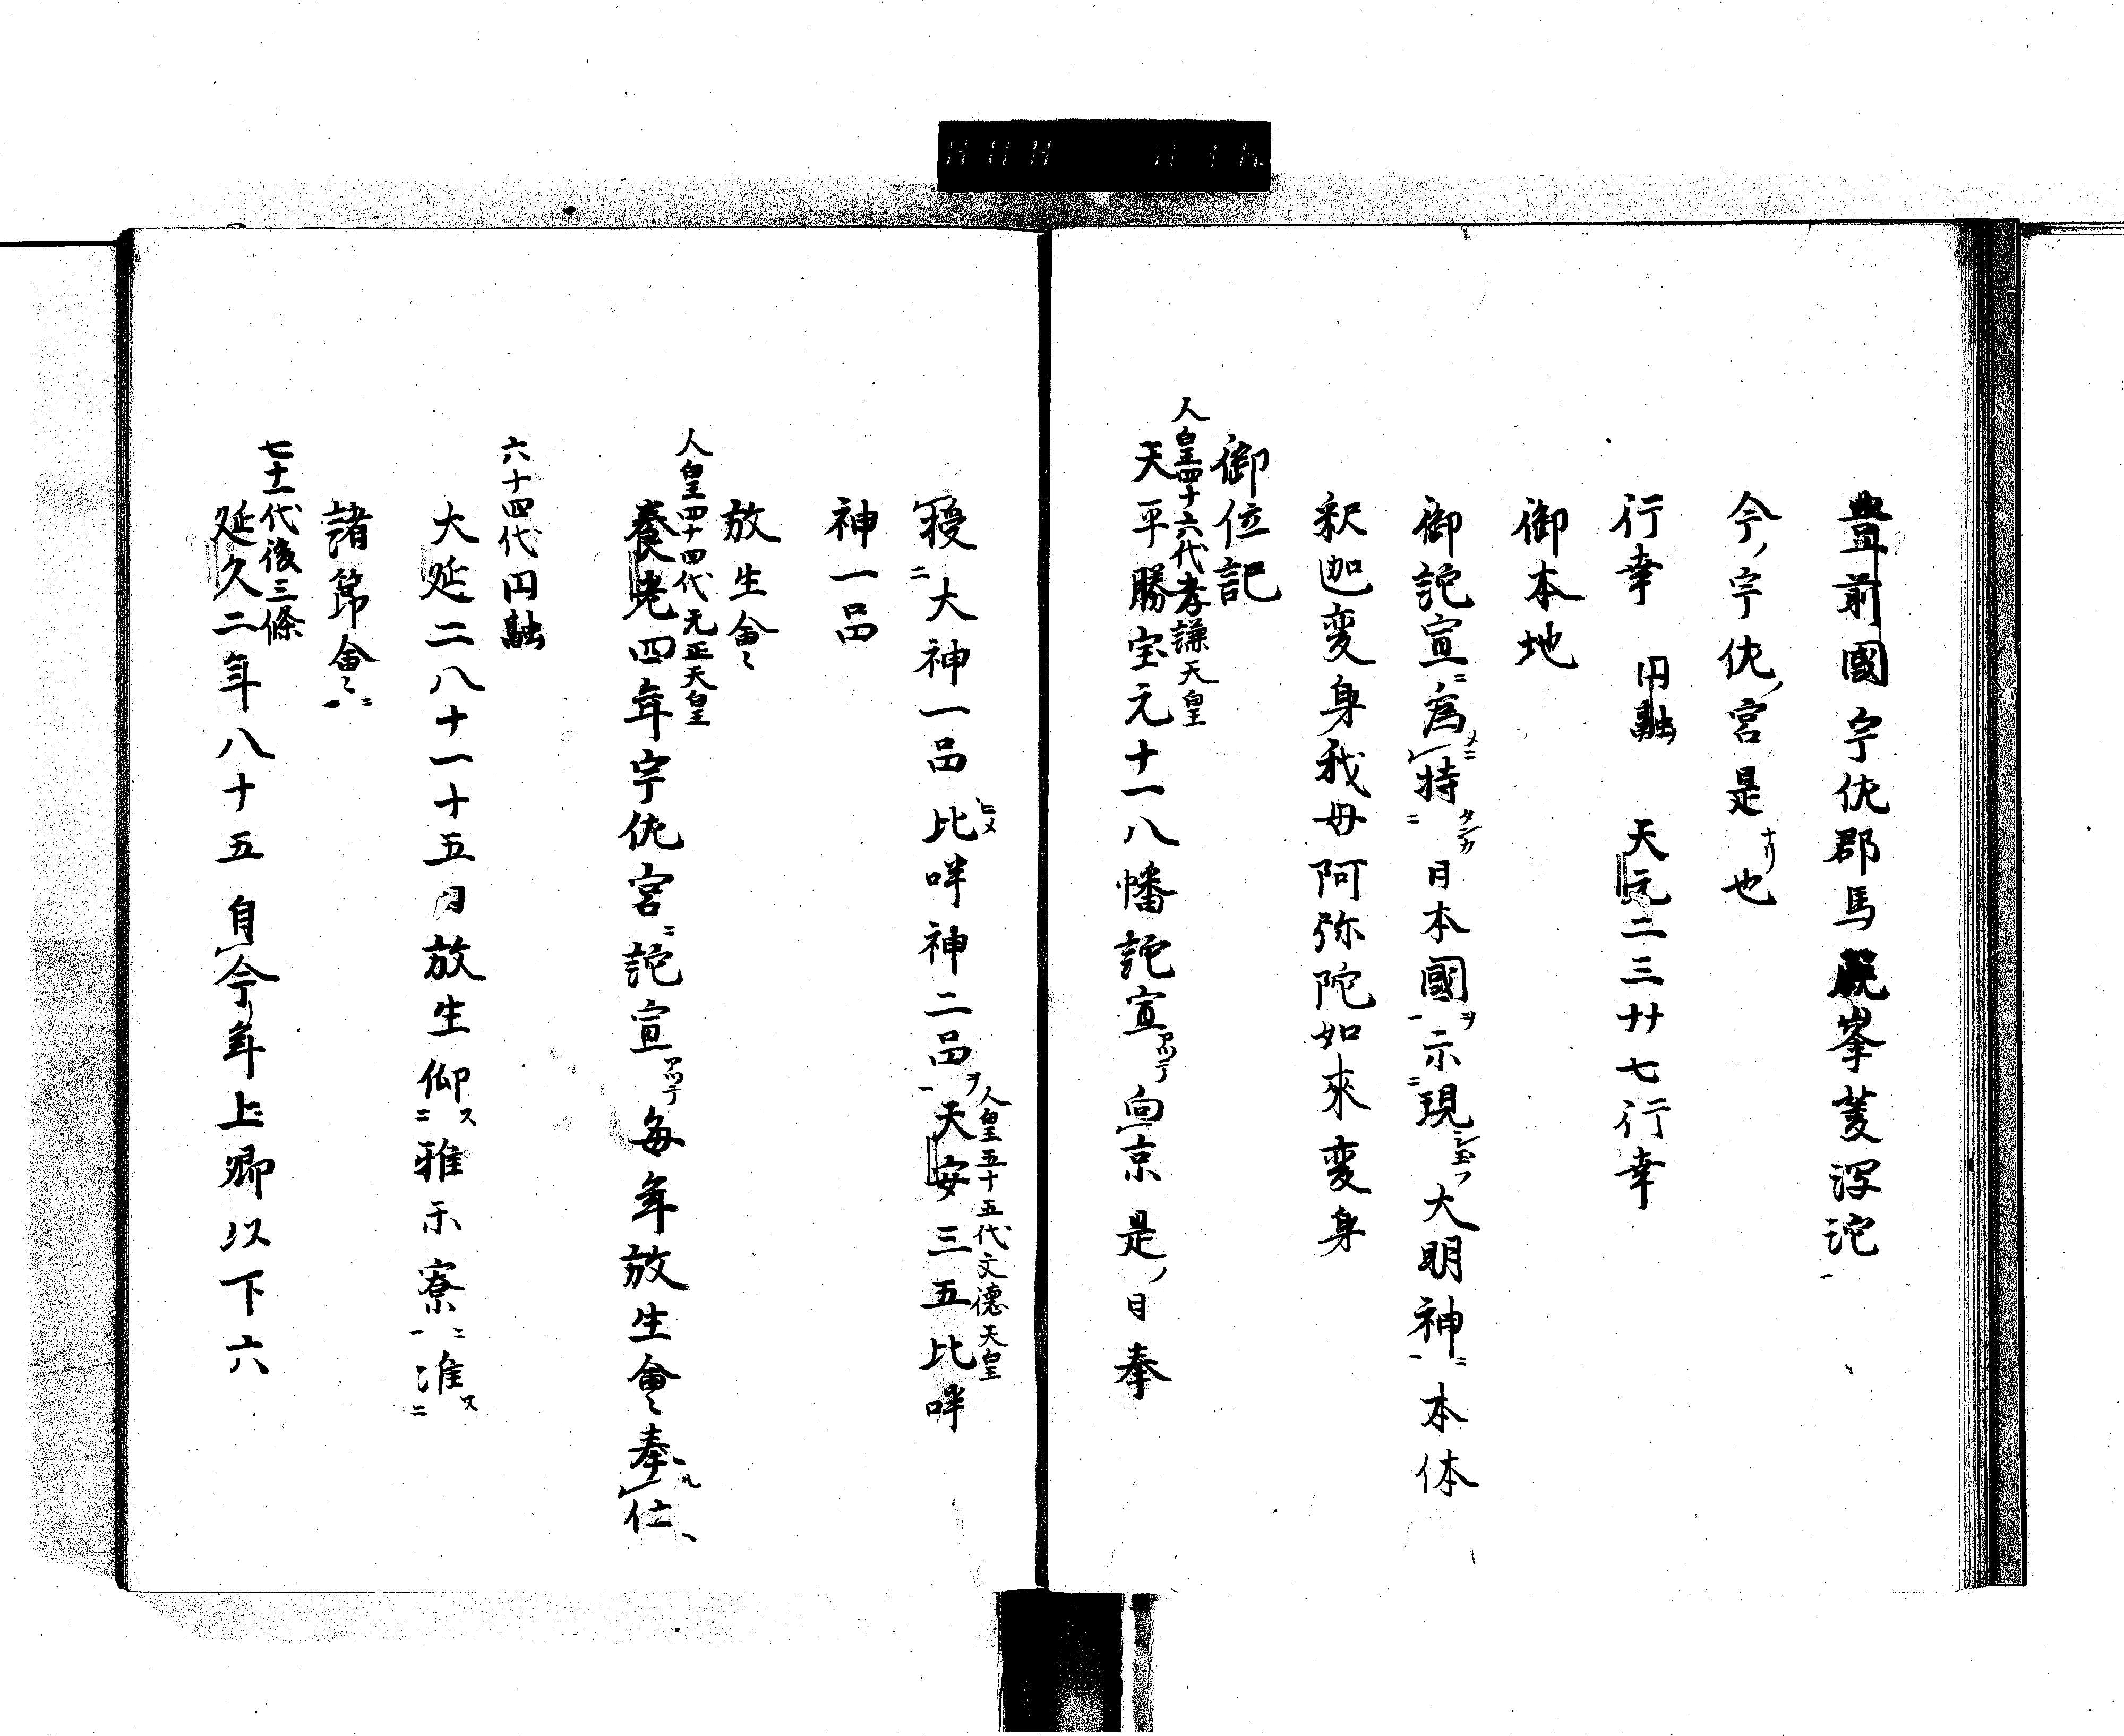 豊前國宇佐郡馬城峯菱深沱一
今ノ宇佐ノ宮是ナリ也
行幸 円融 天元二三廿七行幸
御本地
御詑宣ニ為メニ持ニタンカ日本國一ヲ示二現シ玉フ大明神一ニ本体
釈迦変身我母阿弥陀如来変身
御位記
人皇四十六代孝謙天皇
天平勝宝元十一八幡詑宣アツテ向京是ノ日奉
授二大神一品比ヒメ咩神二品一ヲ天安三五比咩
人皇五十五代文德天皇
神一品
放生會
人皇四十四代元正天皇
養老四年宇佐宮ニ詑宣アツテ毎年放生會奉ル位
六十四代円融
大延二八十一十五日放生仰二ス雅示寮一ニ准二ス
諸節會一ニ
七十一代後三條
延久二年八十五自今年上卿以下六